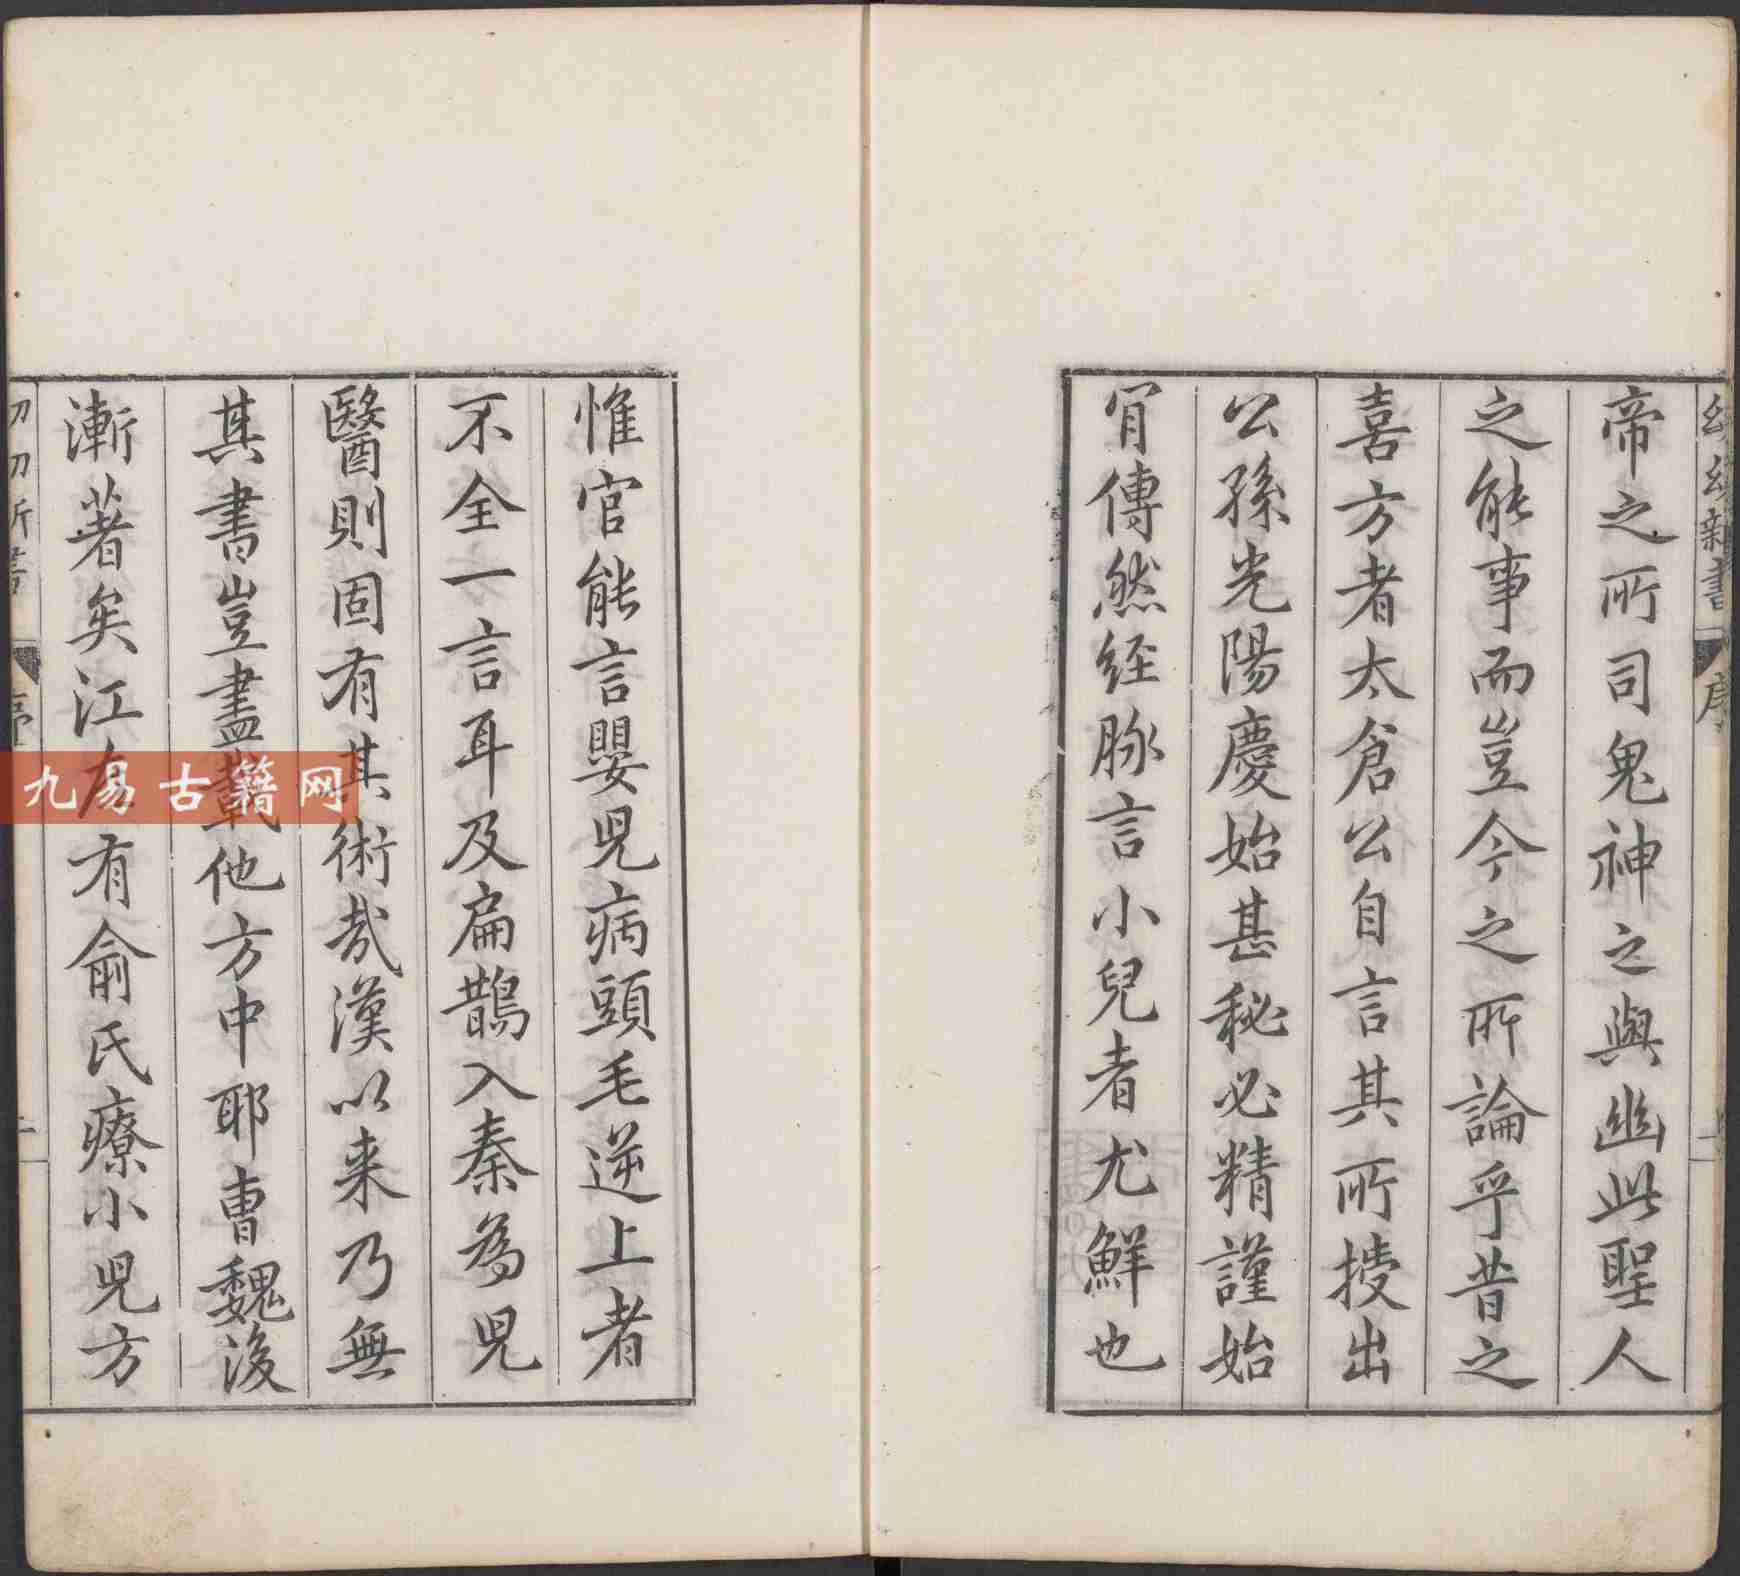 幼幼新書 序 二
帝之所司鬼神之與幽此聖人
之能事而豈今之所論乎昔之
喜方者太倉公自言其所授出
公孫光陽慶始甚秘必精謹始
肯傳然經脉言小兒者尤鮮也
惟官能言嬰兒病頭毛逆上者
不全一言耳及扁鵲入秦為兒
醫則固有其術哉漢以来乃無
其書豈盡載他方中耶曹魏後
漸著矣江左有俞氏療小兒方
九易古籍网